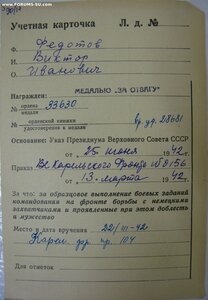 www.FORUMS-SU.com
Учетная карточка Л. д. №
Ф. Федотов
И. Виктор
О. Иванович
Награжден: МЕДАЛЬЮ „ЗА ОТВАГУ"
№ ордена медали 33630
№ орденской книжки удостоверения к медали вр. уд. 28681
Основание: Указ Президиума Верховного Совета СССР
от 25 июня 1942 г.
Приказ ВС Карельского Фронта № 0156
от 13. марта 1942 г.
За что: за образцовое выполнение боевых заданий
командования на фронте борьбы с немецкими
захватчиками и проявленные при этом доблесть
и мужество
Место и дата вручения 22/III-42
Карел. фр. 104
Для отметок